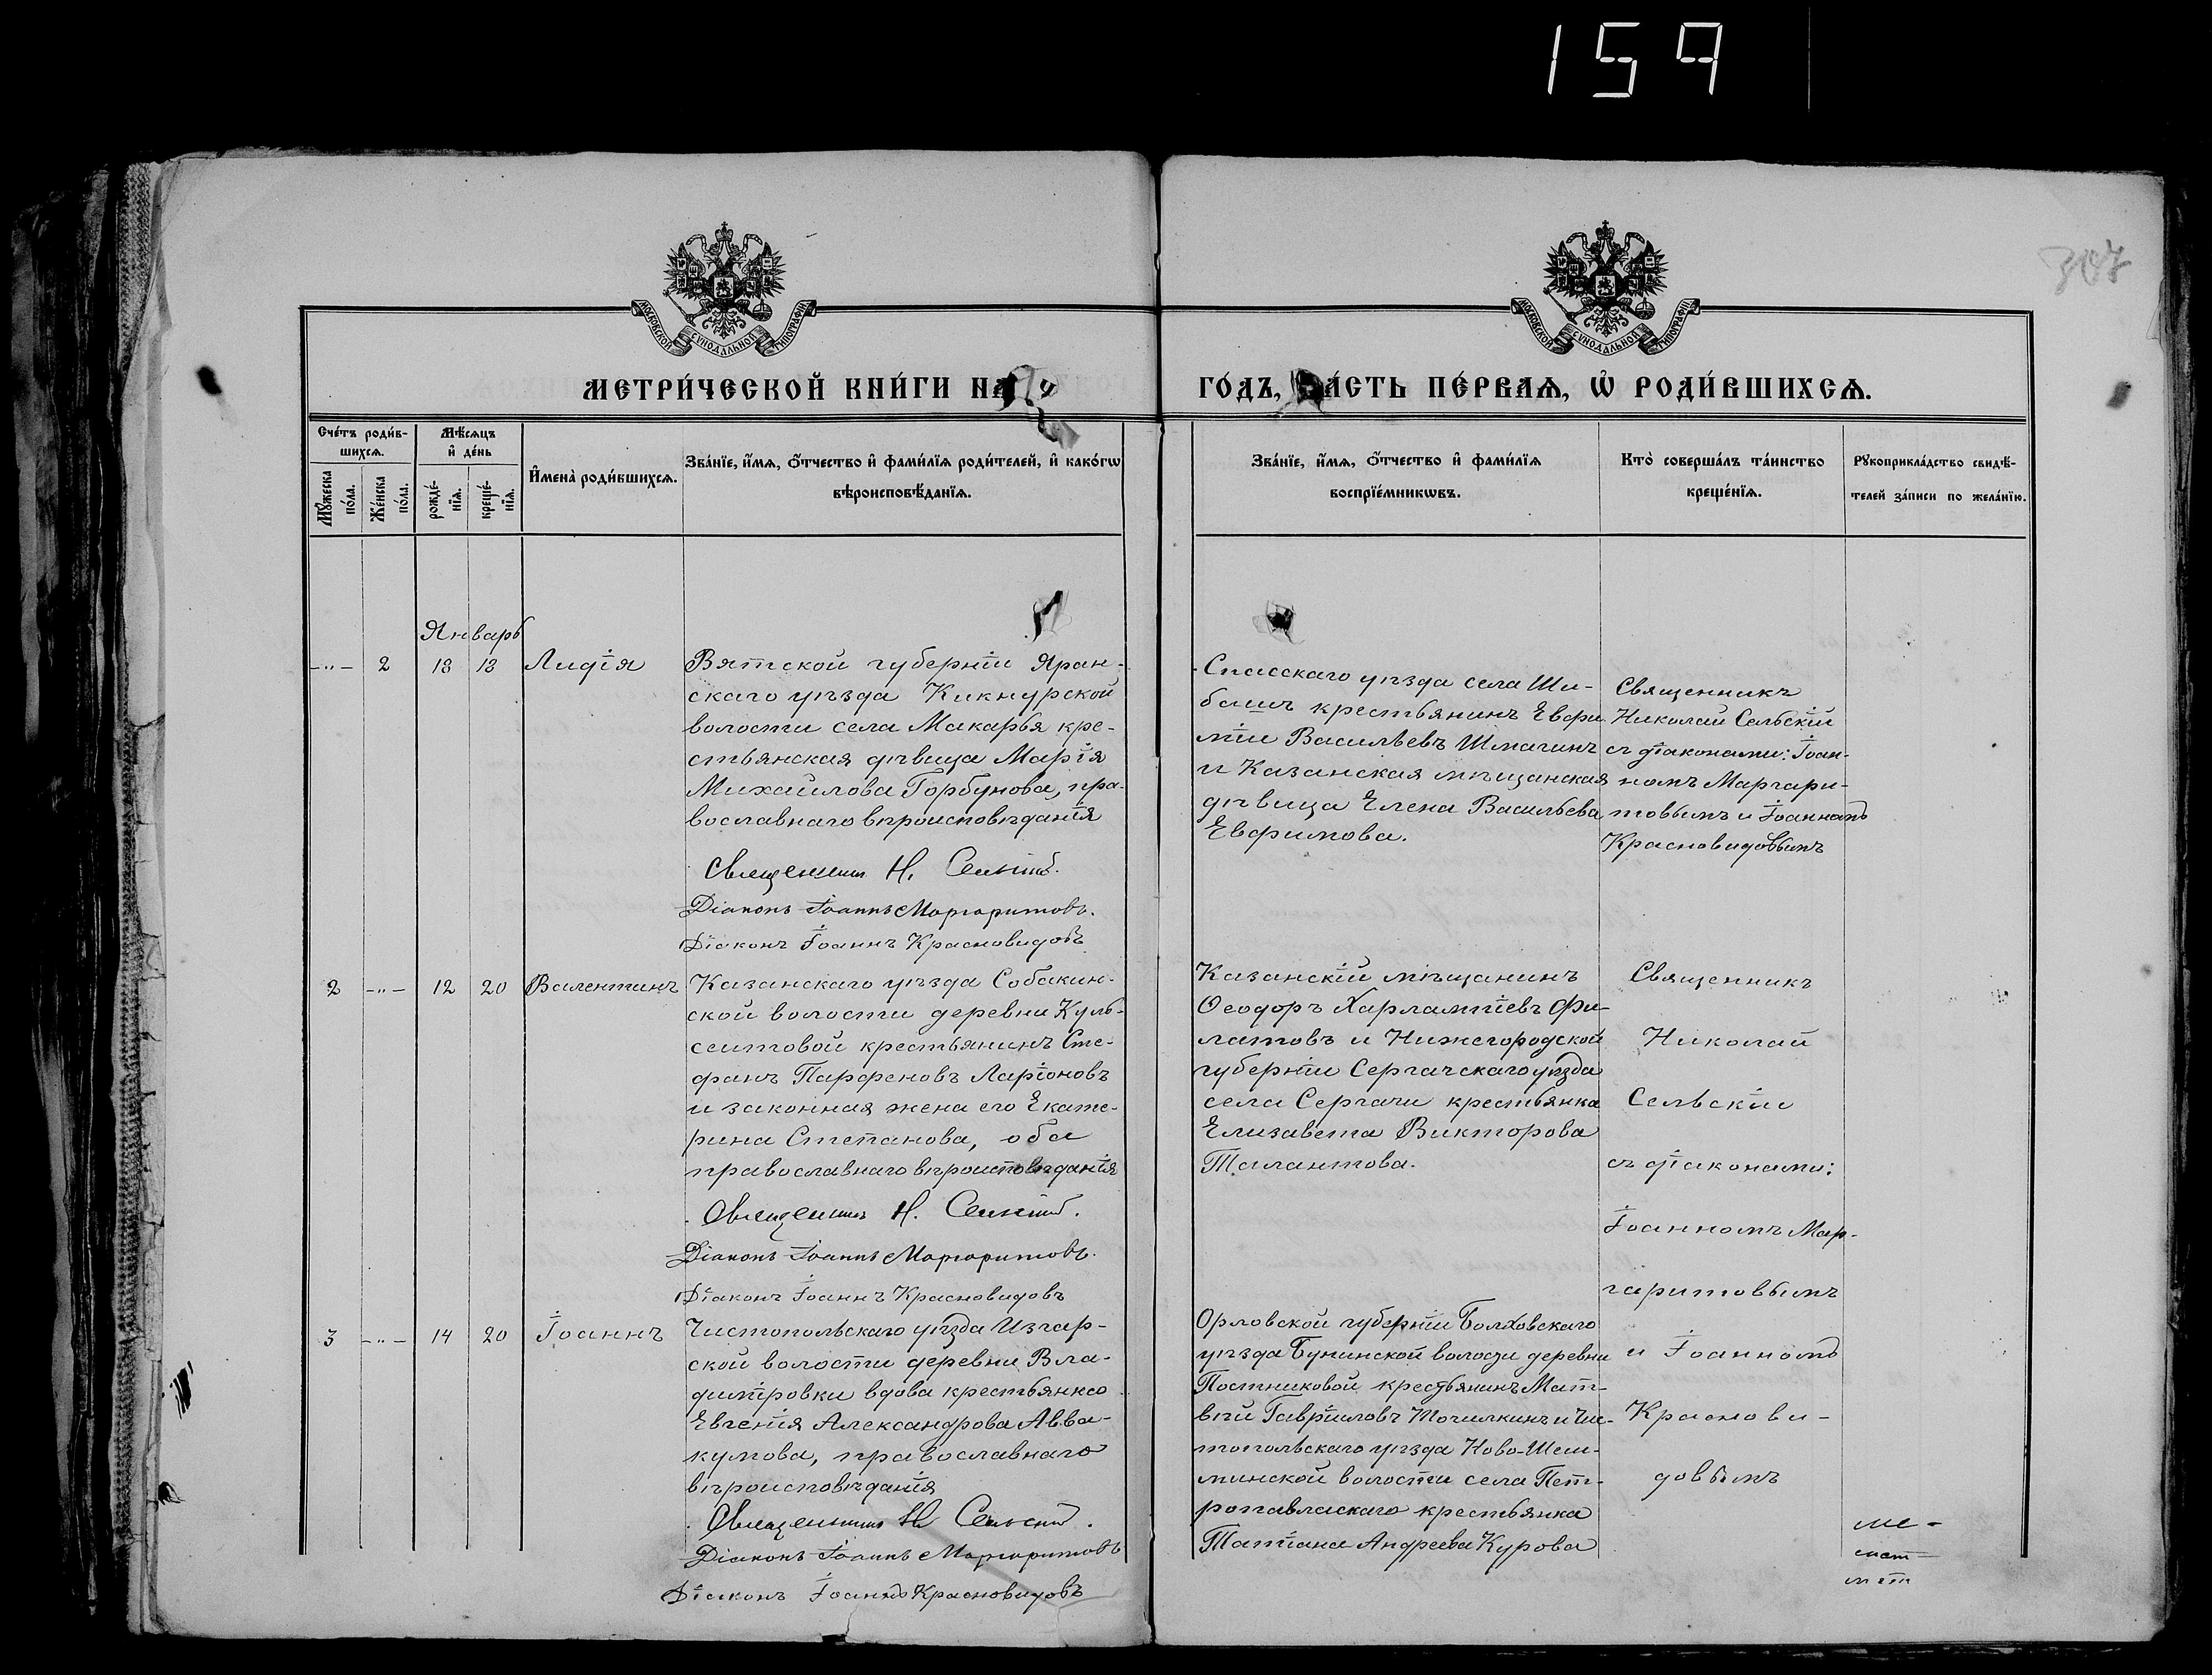 159
307
МОСКОВСКОЙ СУНОДАЛЬНОЙ ТИПОГРАФІИ
МОСКОВСКОЙ СУНОДАЛЬНОЙ ТИПОГРАФІИ
МЕТРИ́ЧЕСКОЙ КНИ́ГИ НА
ГО́ДЪ, ЧА́СТЬ ПЕ́РВАѦ, Ѡ҆ РОДИ́ВШИХСѦ.
Сче́тъ роди́в-
шихсѧ.
Мꙋ́жеска
по́ла.
Же́нска
по́ла.
Мѣ́сѧцъ
и҆ де́нь
рожде́-
нїѧ.
креще́-
нїѧ.
И҆мена̀ роди́вшихсѧ.
Зва́нїе, и҆́мѧ, ѻ҆́тчество и҆ фами́лїѧ роди́телей, и҆ како́гѡ
вѣроисповѣ́данїѧ.
Зва́нїе, и҆́мѧ, ѻ҆́тчество и҆ фами́лїѧ
воспрїе́мникѡвъ.
Кто̀ соверша́лъ та́инство
креще́нїѧ.
Рꙋкоприкла́дство свидѣ́-
телей за́писи по жела́нїю.
Январь
-"- 2 18 18 Лидія
Вятской губерніи Яран-
скаго уѣзда Кикнурской
волости села Макарья кре-
стьянская дѣвица Марія
Михаилова Горбунова, пра-
вославнаго вѣроисповѣданія
Священникъ Н. Сельскій.
Діаконъ Іоаннъ Маргаритовъ.
Діаконъ Іоаннъ Красновидовъ
Спасскаго уѣзда села Ши-
башъ крестьянинъ Евфи-
мій Васильевъ Шмагинъ
и Казанская мѣщанская
дѣвица Елена Васильева
Евфимова.
Священникъ
Николай Сельскій
съ діаконами: Іоан-
номъ Маргари-
товымъ и Іоанномъ
Красновидовымъ
2 -"- 12 20 Валентинъ
Казанскаго уѣзда Собакин-
ской волости деревни Куль-
сеитовой крестьянинъ Сте-
фанъ Парфеновъ Ларіоновъ
и законная жена его Екате-
рина Степанова, оба
православнаго вѣроисповѣданія
Священникъ Н. Сельскій.
Діаконъ Іоаннъ Маргаритовъ.
Діаконъ Іоаннъ Красновидовъ
Казанскій мѣщанинъ
Ѳеодоръ Харлампіевъ Фи-
латовъ и Нижегородской
губерніи Сергачскаго уѣзда
села Сергачи крестьянка
Елизавета Викторова
Талантова.
Священникъ
Николай
Сельскій
съ діаконами:
Іоанномъ Мар-
гаритовымъ
и Іоанномъ
Краснови-
довымъ
3 -"- 14 20 Іоаннъ
Чистопольскаго уѣзда Изгар-
ской волости деревни Вла-
диміровки вдова крестьянка
Евгенія Александрова Авва-
кумова, православнаго
вѣроисповѣданія
Священникъ Н Сельскій.
Діаконъ Іоаннъ Маргаритовъ
Діаконъ Іоаннъ Красновидовъ
Орловской губерніи Болховскаго
уѣзда Бунинской волости деревни
Постниковой крестьянинъ Мат-
вѣй Гавріиловъ Точилкинъ и Чис-
топольскаго уѣзда Ново-Шеш-
минской волости села Пет-
ропавловскаго крестьянка
Татіана Андреева Курова